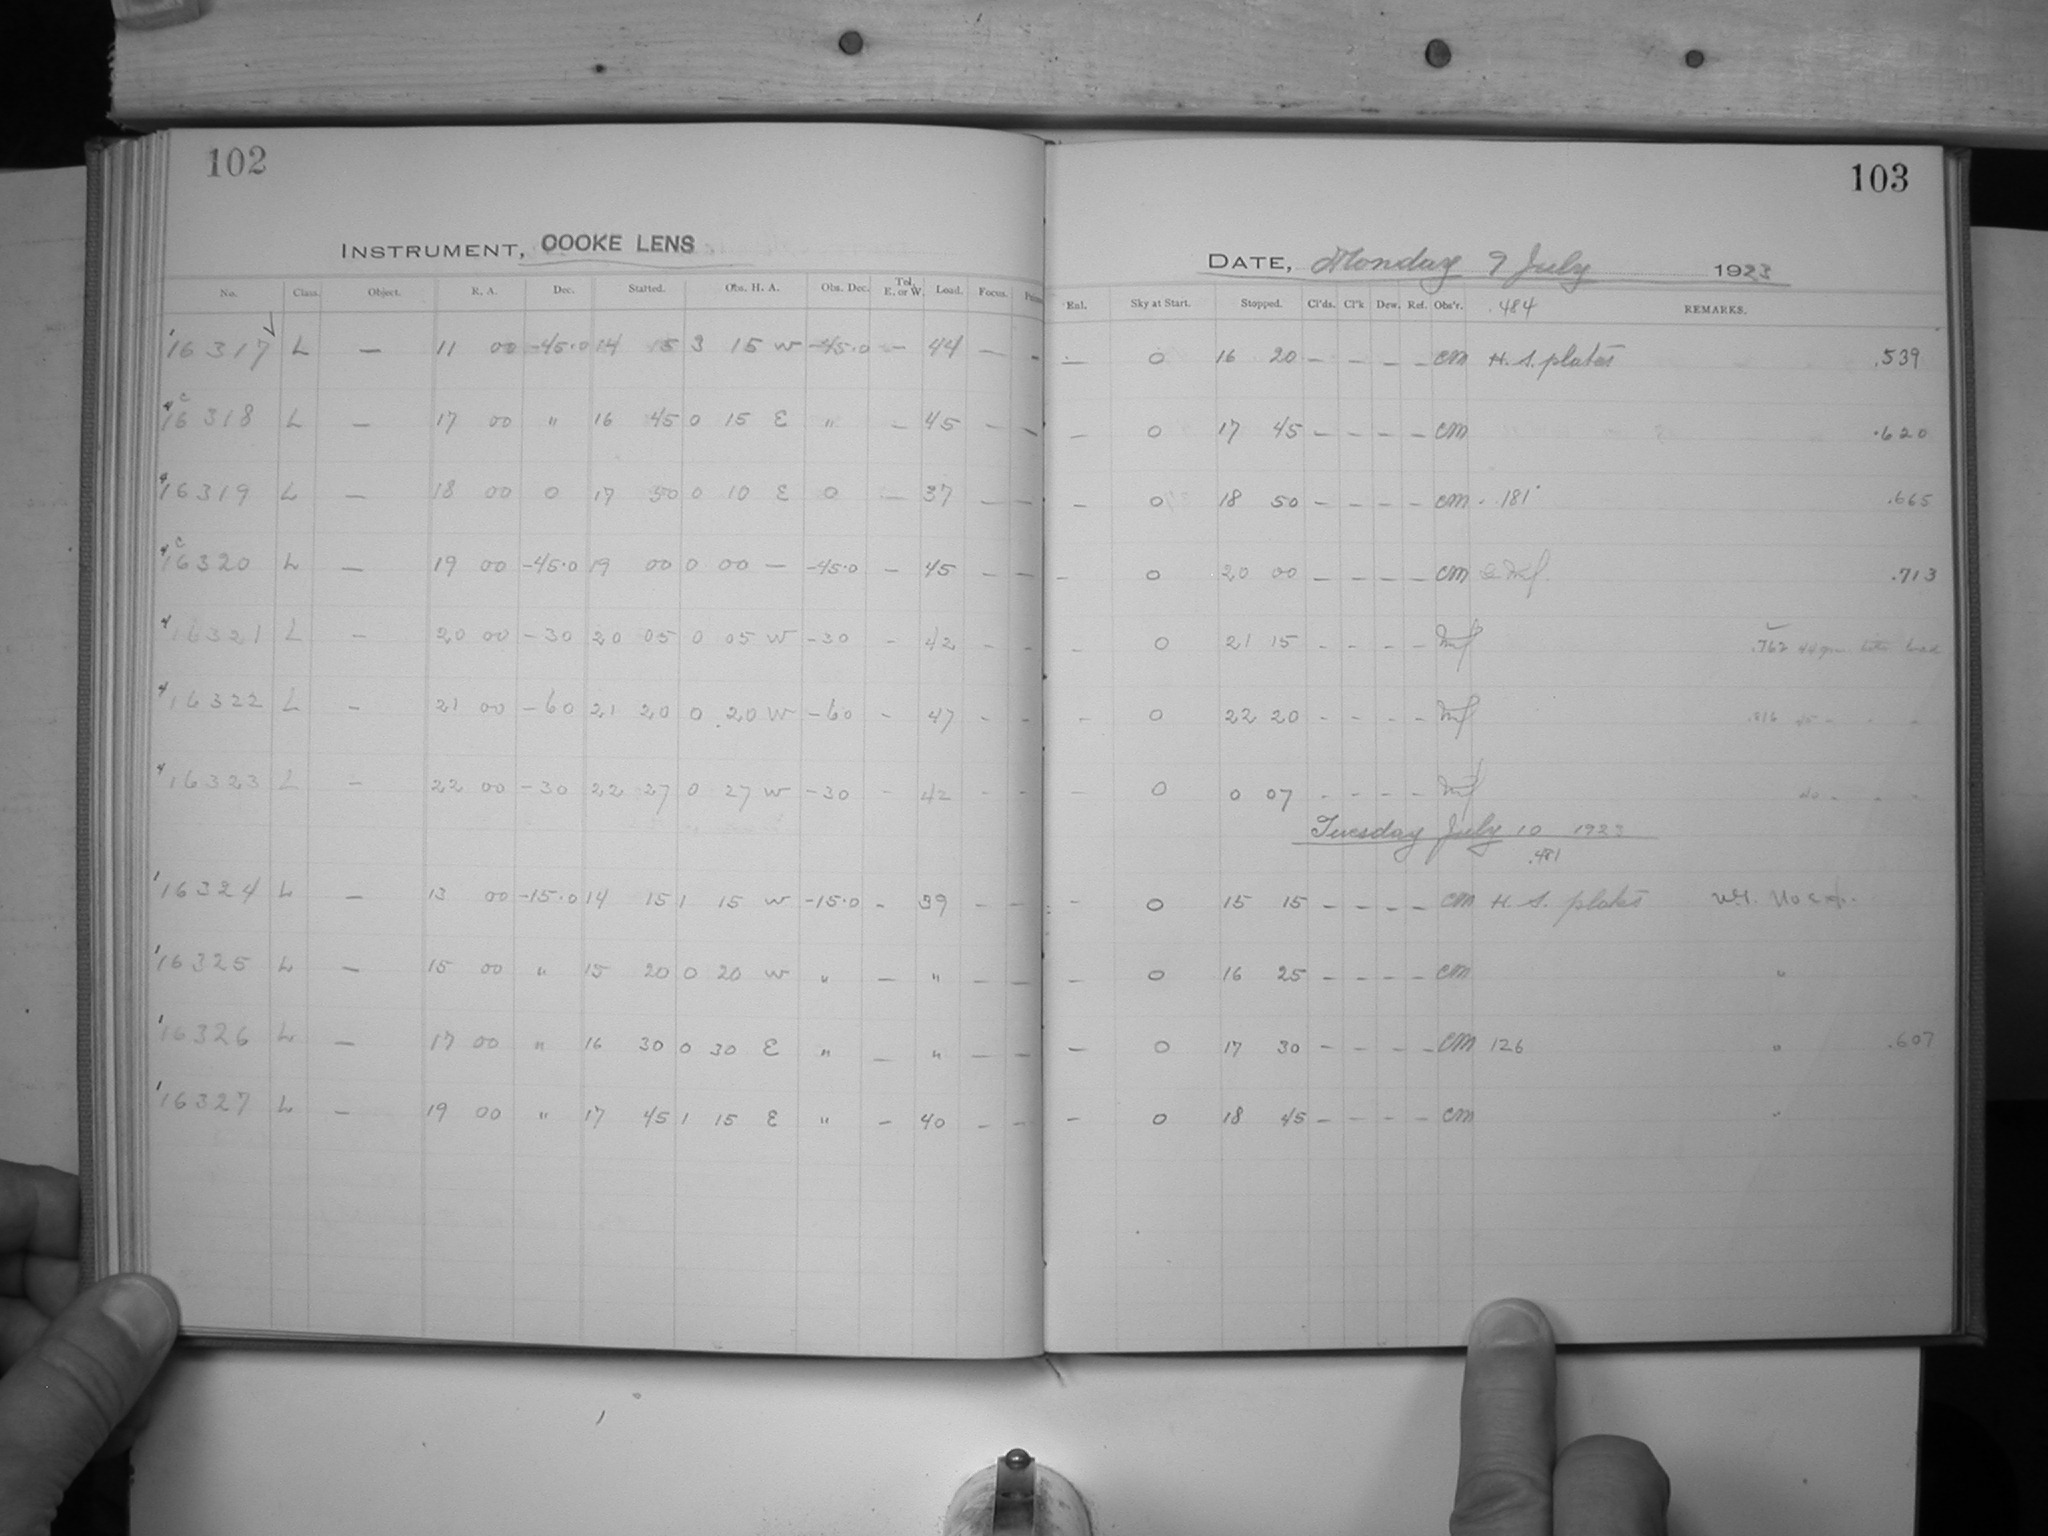 102
INSTRUMENT, COOKE LENS
No. Class. Object. R. A. Dec. Started. Obs. H. A. Obs. Dec. Tel. E. or W. Load. Focus.
16317 L — 11 00 -45.0 14 15 3 15 W -45.0 — 44 — -
16318 L — 17 00 " 16 45 0 15 E " — 45 - -
16319 L — 18 00 0 17 50 0 10 E 0 — 37 — —
16320 L — 19 00 -45.0 19 00 0 00 — -45.0 — 45 — —
16321 L - 20 00 -30 20 05 0 05 W -30 - 42 - -
16322 L - 21 00 -60 21 20 0 20 W -60 - 47 - -
16323 L - 22 00 -30 22 27 0 27 W -30 - 42 - -
16324 L — 13 00 -15.0 14 15 1 15 W -15.0 - 39 - —
16325 L — 15 00 " 15 20 0 20 W " — " — —
16326 L — 17 00 " 16 30 0 30 E " — " — —
16327 L — 19 00 " 17 45 1 15 E " — 40 - —
103
DATE, Monday 9 July 1923
Rul. Sky at Start. Stopped. Cl'ds. Cl'k Dew. Ref. Obs'r. .484 REMARKS.
— 0 16 20 — — — — CM H. S. plates .539
— 0 17 45 — — — — CM .620
— 0 18 50 — — — — CM .181 .665
— 0 20 00 — — — — CM .713
- 0 21 15 - - - - .762
- 0 22 20 - - - - .816
- 0 0 07 - - - - 40 - - -
Tuesday July 10 1923
.481
- 0 15 15 — — — — CM H. S. plates
— 0 16 25 — — — — CM "
— 0 17 30 — — — — CM 126 " .607
— 0 18 45 — — — — CM "